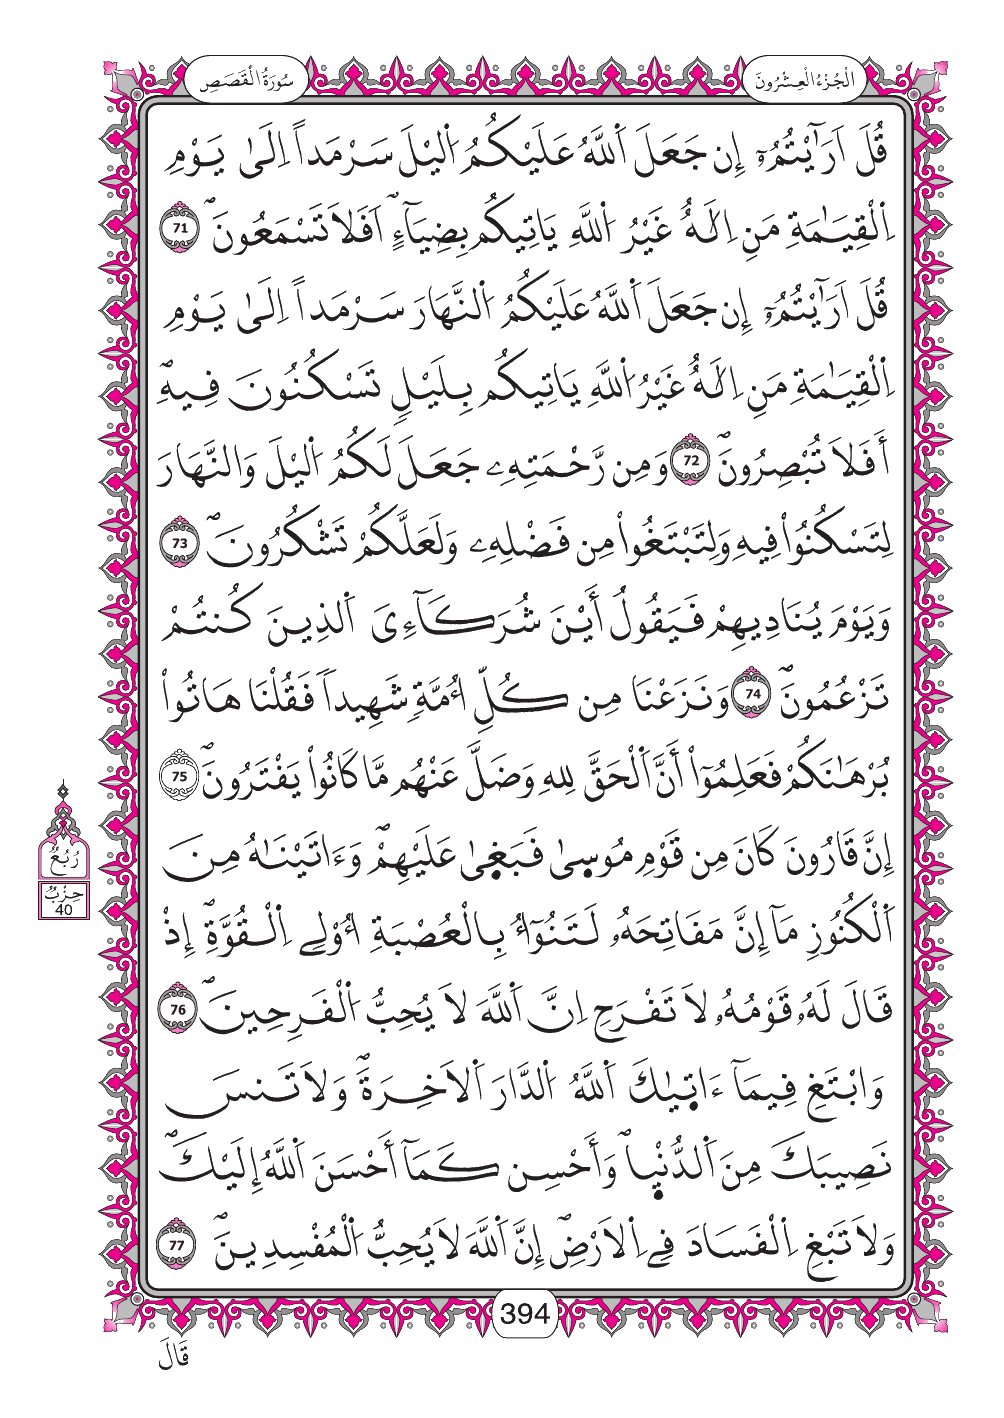 سُورَةُ الْقَصَصِ
الْجُزْءُ الْعِشْرُونَ
قُلَ اَرَٰٓيْتُمُۥٓ إِن جَعَلَ اَ۬للَّهُ عَلَيْكُمُ اُ۬ليْلَ سَرْمَداً اِلَىٰ يَوْمِ
اِ۬لْقِيَٰمَةِ مَنِ اِلَٰهٌ غَيْرُ اُ۬للَّهِ يَاتِيكُم بِضِيَآءٍۖ اَفَلَا تَسْمَعُونَۖ 71
قُلَ اَرَٰٓيْتُمُۥٓ إِن جَعَلَ اَ۬للَّهُ عَلَيْكُمُ اُ۬لنَّهَارَ سَرْمَداً اِلَىٰ يَوْمِ
اِ۬لْقِيَٰمَةِ مَنِ اِلَٰهٌ غَيْرُ اُ۬للَّهِ يَاتِيكُم بِلَيْلٖ تَسْكُنُونَ فِيهِۖ
أَفَلَا تُبْصِرُونَۖ 72 وَمِن رَّحْمَتِهِۦ جَعَلَ لَكُمُ اُ۬ليْلَ وَالنَّهَارَ
لِتَسْكُنُواْ فِيهِ وَلِتَبْتَغُواْ مِن فَضْلِهِۦ وَلَعَلَّكُمْ تَشْكُرُونَۖ 73
وَيَوْمَ يُنَادِيهِمْ فَيَقُولُ أَيْنَ شُرَكَآءِيَ اَ۬لذِينَ كُنتُمْ
تَزْعُمُونَۖ 74 وَنَزَعْنَا مِن كُلِّ أُمَّةٖ شَهِيداً فَقُلْنَا هَاتُواْ
بُرْهَٰنَكُمْ فَعَلِمُوٓاْ أَنَّ اَ۬لْحَقَّ لِلهِ وَضَلَّ عَنْهُم مَّا كَانُواْ يَفْتَرُونَۖ 75
إِنَّ قَارُونَ كَانَ مِن قَوْمِ مُوسىٰ فَبَغىٰ عَلَيْهِمْۖ وَءَاتَيْنَٰهُ مِنَ
اَ۬لْكُنُوزِ مَآ إِنَّ مَفَاتِحَهُۥ لَتَنُوٓأُ بِالْعُصْبَةِ أُوْلِے اِ۬لْقُوَّةِۖ إِذْ
قَالَ لَهُۥ قَوْمُهُۥ لَا تَفْرَحِ اِنَّ اَ۬للَّهَ لَا يُحِبُّ اُ۬لْفَرِحِينَۖ 76
وَابْتَغِ فِيمَآ ءَاتٜىٰكَ اَ۬للَّهُ اُ۬لدَّارَ اَ۬لَاخِرَةَۖ وَلَا تَنسَ
نَصِيبَكَ مِنَ اَ۬لدُّنْيٜاۖ وَأَحْسِن كَمَآ أَحْسَنَ اَ۬للَّهُ إِلَيْكَۖ
وَلَا تَبْغِ اِ۬لْفَسَادَ فِے اِ۬لَارْضِۖ إِنَّ اَ۬للَّهَ لَا يُحِبُّ اُ۬لْمُفْسِدِينَۖ 77
رُبُعُ
حِزْبٌ
40
394
قَالَ